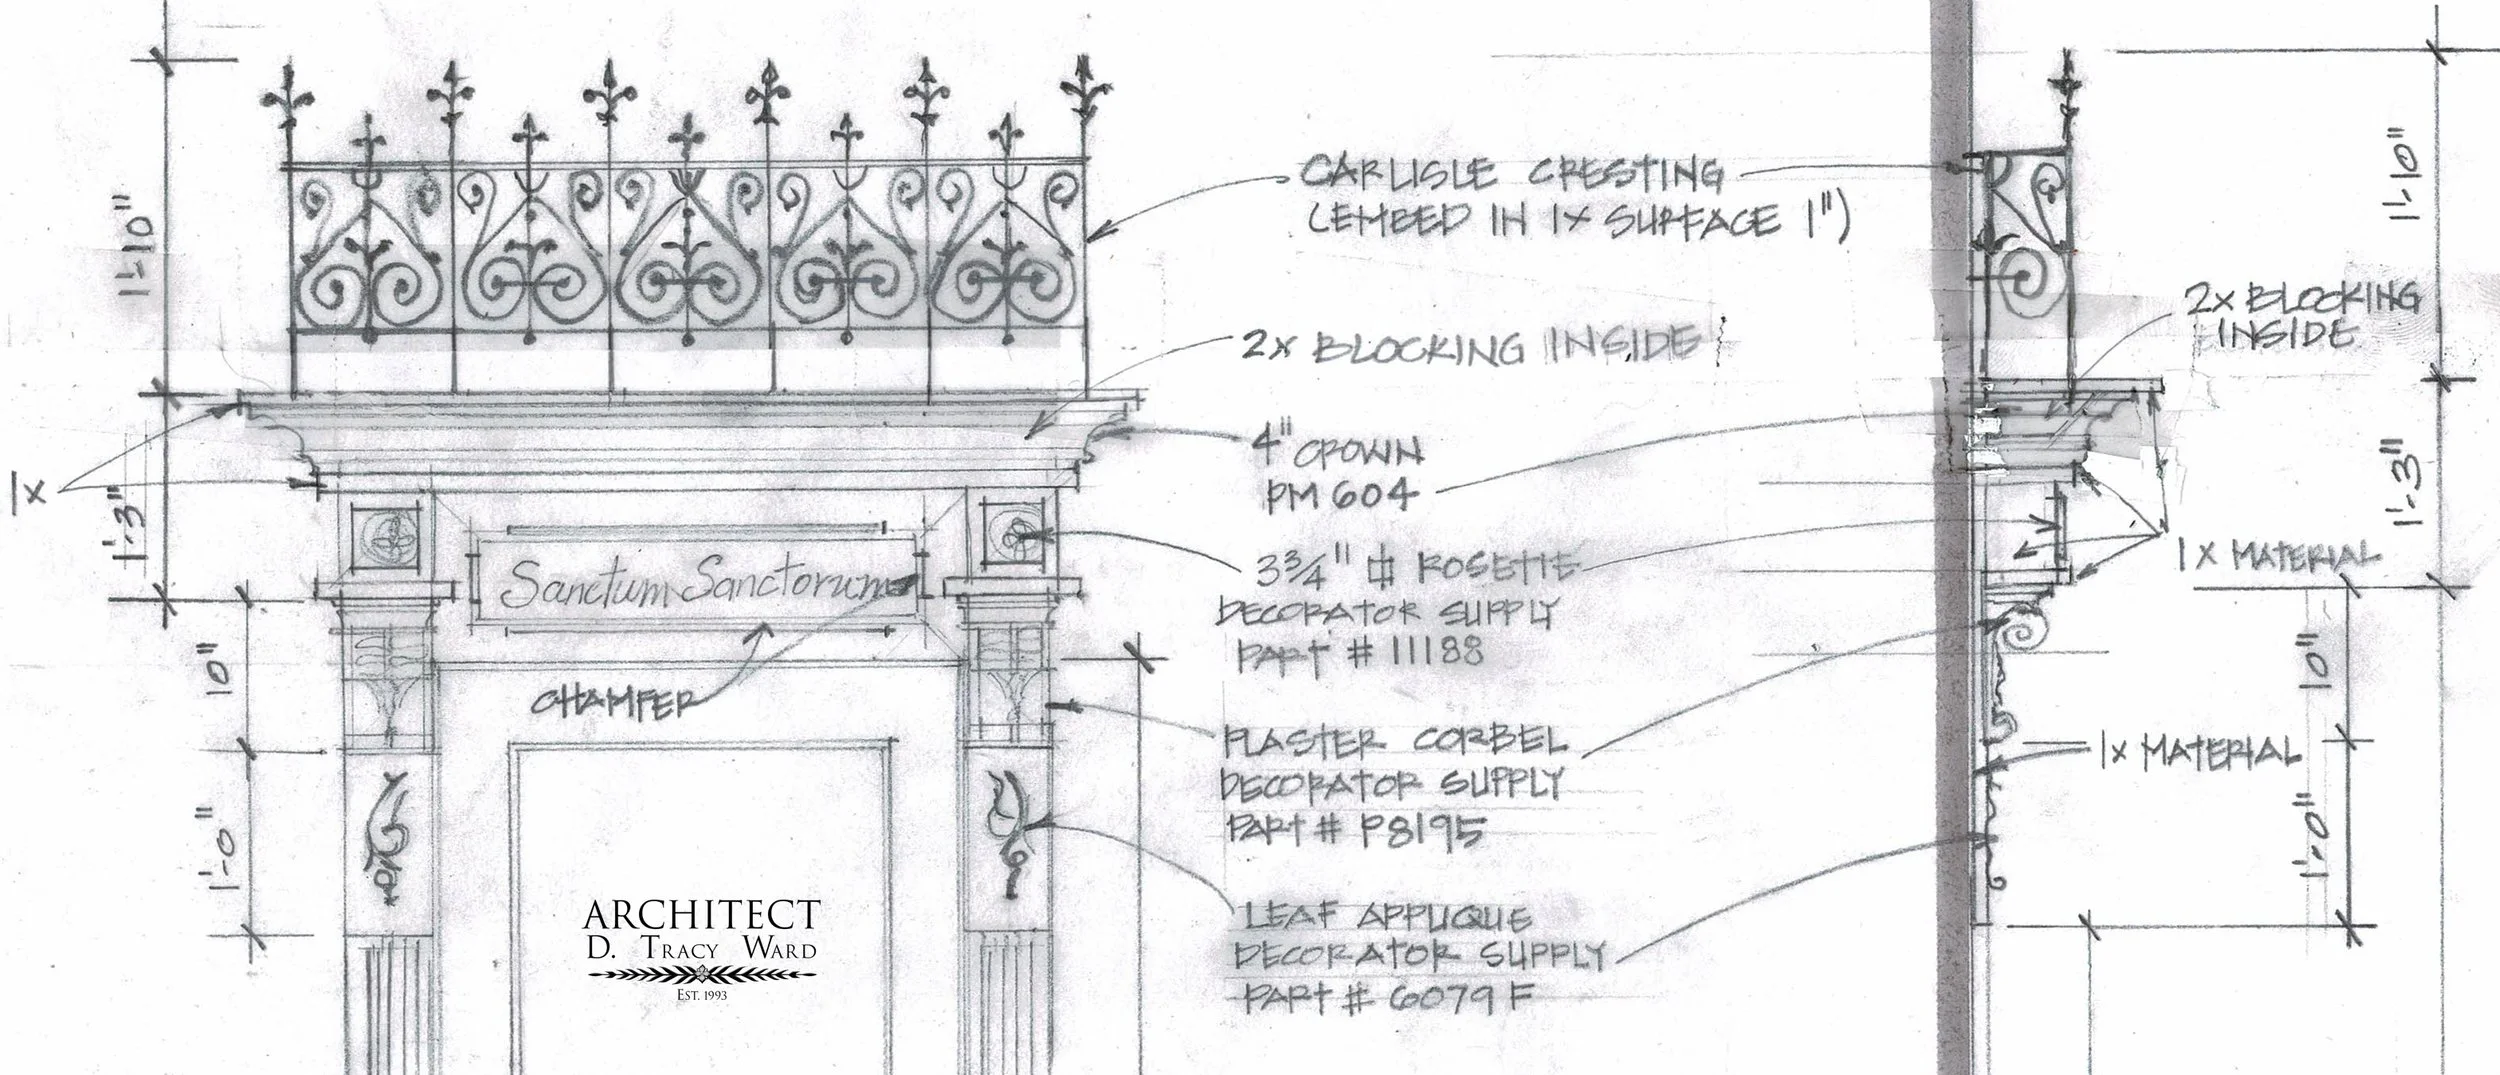 1'-10"
1x
1'-3"
10"
1'-0"
Sanctum Sanctorum
CHAMFER
ARCHITECT
D. TRACY WARD
EST. 1993
CARLISLE CRESTING
(EMBED IN 1X SURFACE 1")
2X BLOCKING INSIDE
4" CROWN
PM 604
3 3/4" ⌗ ROSETTE
DECORATOR SUPPLY
PART # 11188
PLASTER CORBEL
DECORATOR SUPPLY
PART # P8195
LEAF APPLIQUE
DECORATOR SUPPLY
PART # 6079 F
1'-10"
2X BLOCKING
INSIDE
1'-3"
1X MATERIAL
10"
1X MATERIAL
1'-0"